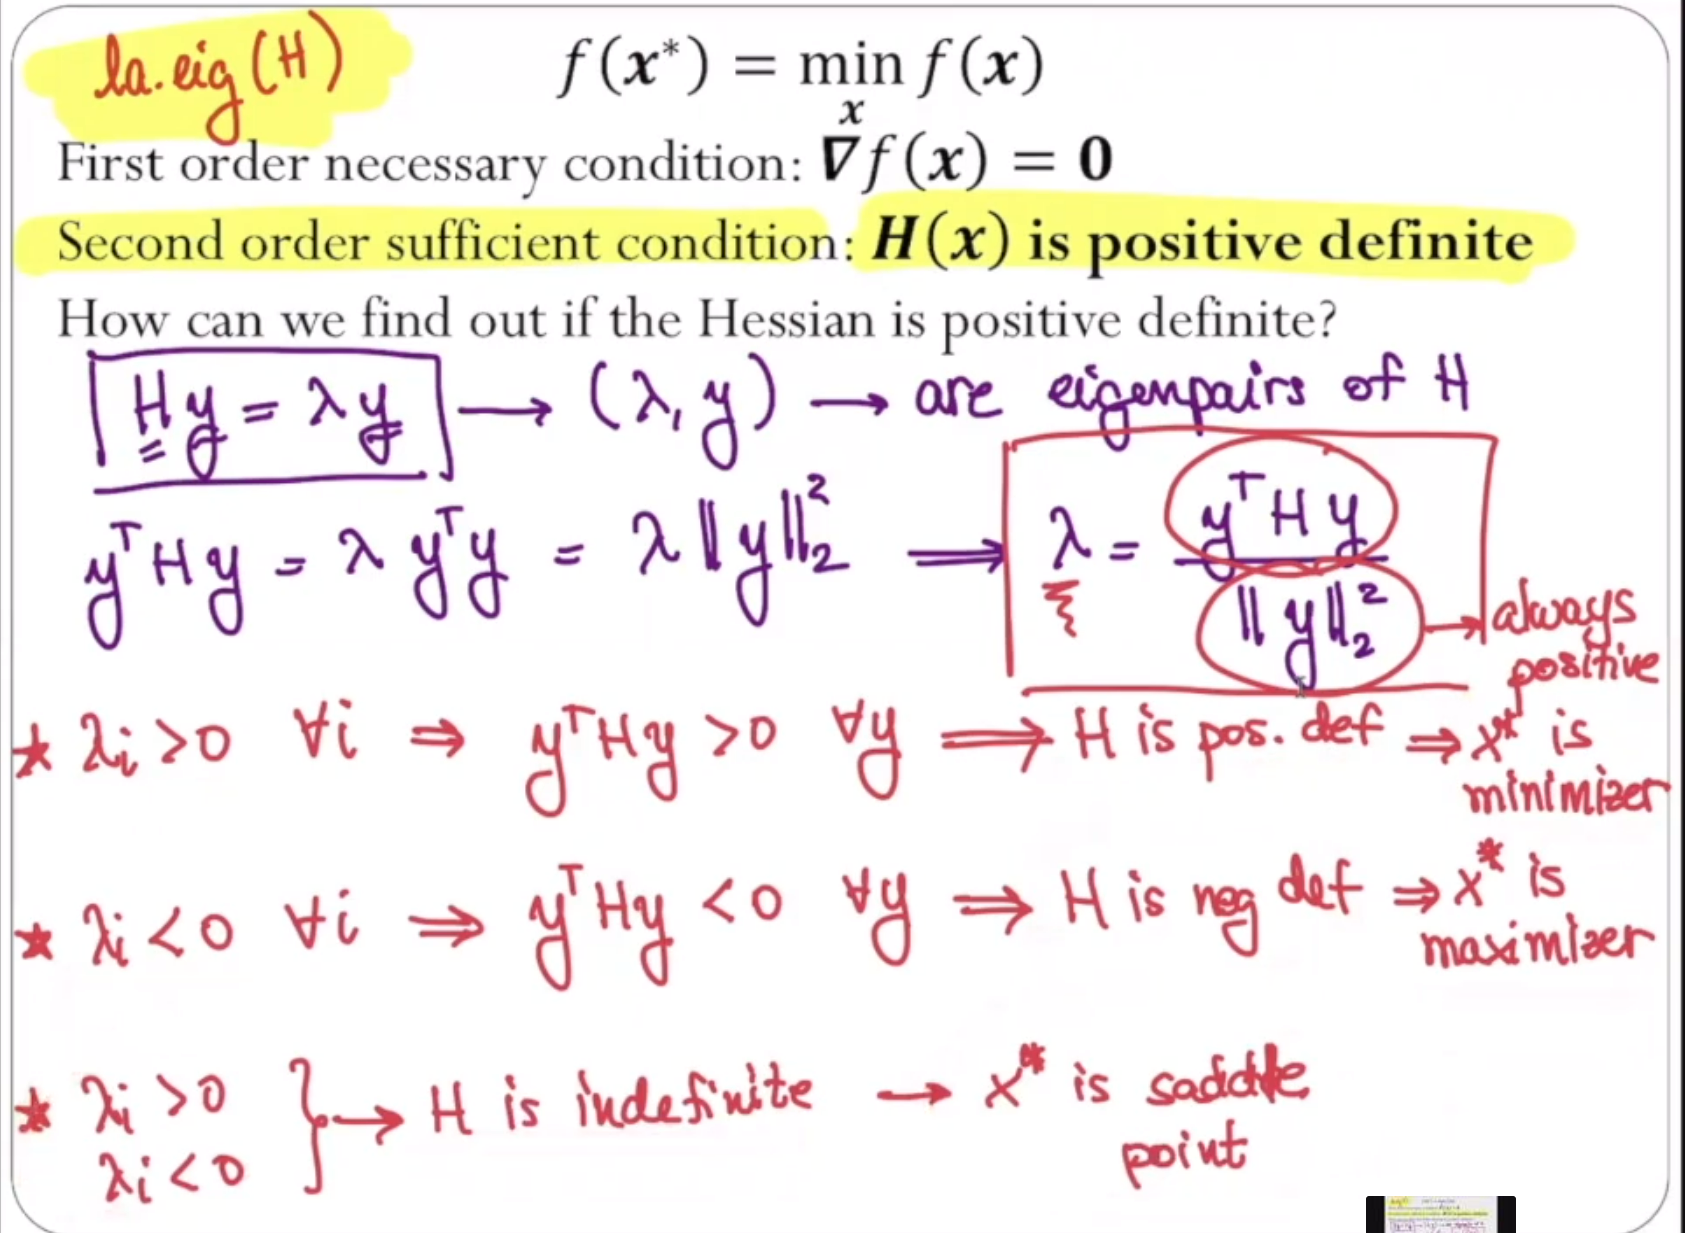 la.eig(H)
f(x*) = min f(x)
x
First order necessary condition: ∇f(x) = 0
Second order sufficient condition: H(x) is positive definite
How can we find out if the Hessian is positive definite?
Hy = λy → (λ, y) → are eigenpairs of H
yᵀHy = λ yᵀy = λ‖y‖₂² ⟹ λ = yᵀHy / ‖y‖₂² → always positive
★ λi > 0 ∀i ⇒ yᵀHy > 0 ∀y ⟹ H is pos. def ⇒ x* is
minimizer
★ λi < 0 ∀i ⇒ yᵀHy < 0 ∀y ⟹ H is neg def ⇒ x* is
maximizer
★ λi > 0
λi < 0 } → H is indefinite → x* is saddle
point